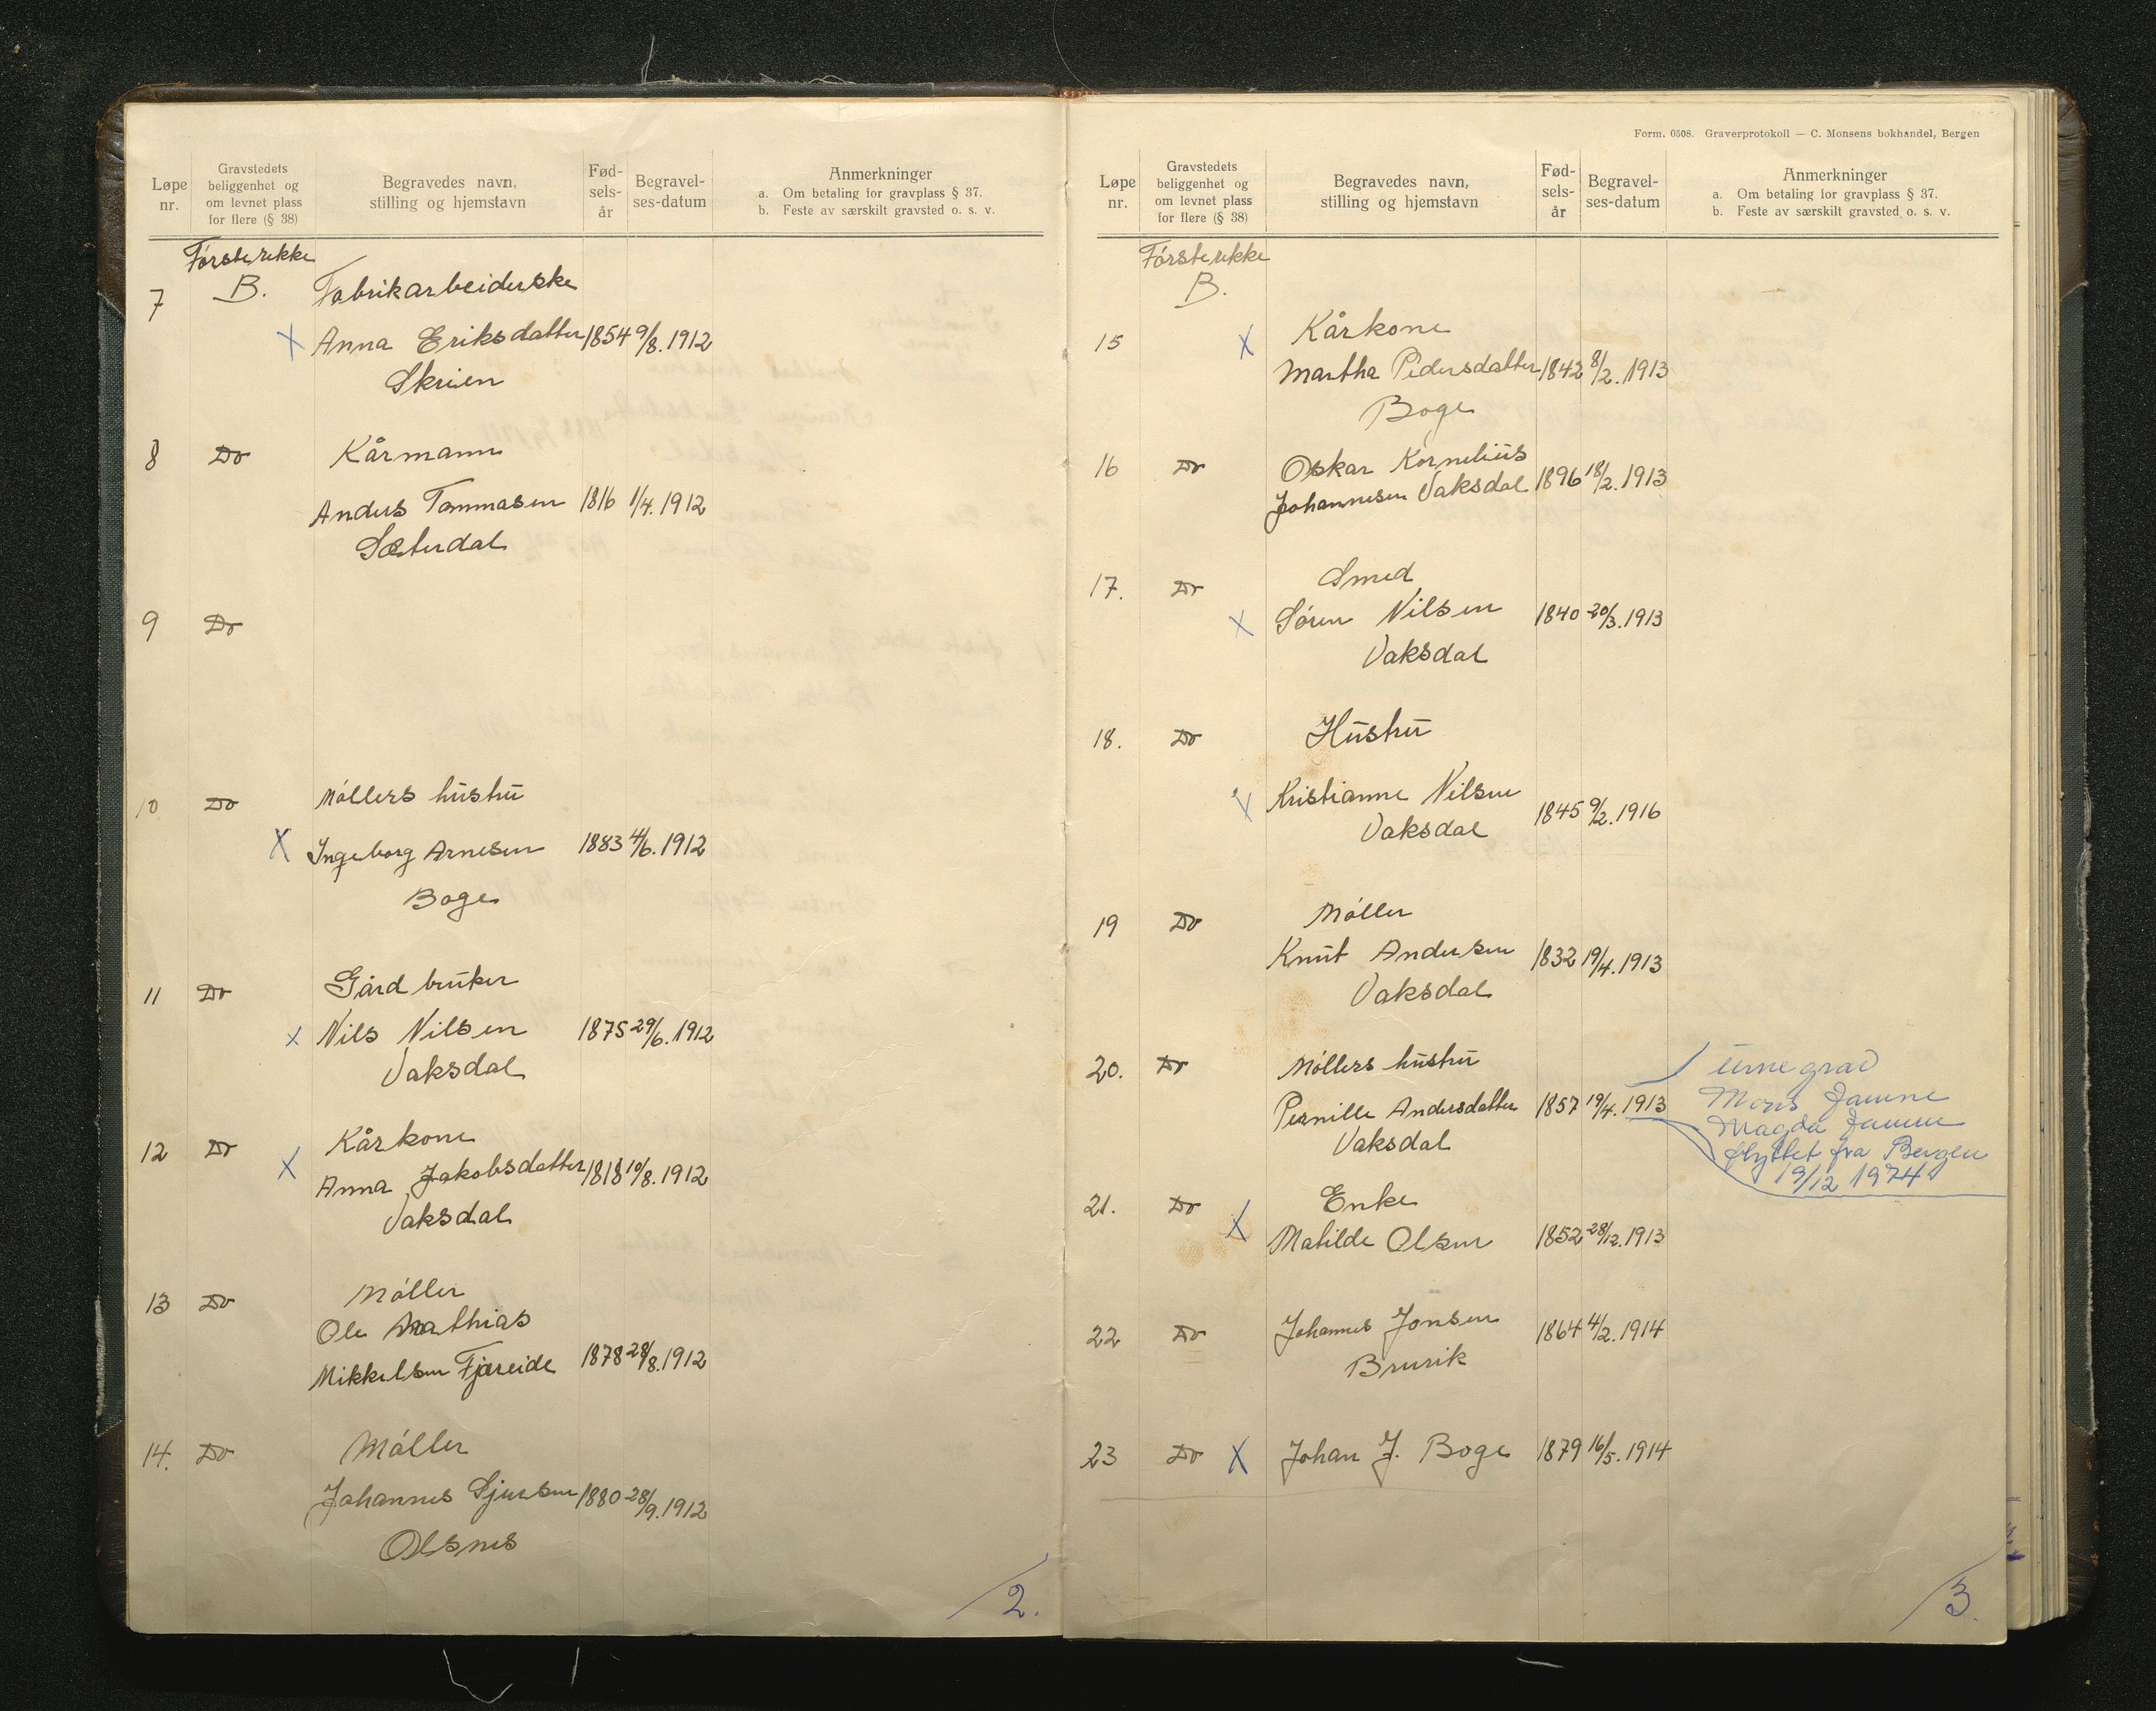 Løpe nr.
Gravstedets beliggenhet og om levnet plass for flere (§ 38)
Begravedes navn, stilling og hjemstavn
Fød-sels-år
Begravel-ses-datum
Anmerkninger
a. Om betaling for gravplass § 37.
b. Feste av særskilt gravsted o. s. v.
Første rekke
7 B. Fabrikarbeiderske
X Anna Eriksdatter 1854 9/8. 1912
Skrien
8 Do Kårmann
Anders Tommasen 1816 1/4. 1912
Sæterdal
9 Do
10 Do Møllers hustru
X Ingeborg Arnesen 1883 4/6. 1912
Boge
11 Do Gårdbruker
X Nils Nilsen 1875 29/6. 1912
Vaksdal
12 Do Kårkone
X Anna Jakobsdatter 1818 10/8. 1912
Vaksdal
13 Do Møller
Ole Mathias
Mikkelsen Fjæreide 1878 28/8. 1912
14. Do Møller
Johannes Sjursen 1880 28/9. 1912
Olsnes
2.
Form. 0508. Graverprotokoll — C. Monsens bokhandel, Bergen
Løpe nr.
Gravstedets beliggenhet og om levnet plass for flere (§ 38)
Begravedes navn, stilling og hjemstavn
Fød-sels-år
Begravel-ses-datum
Anmerkninger
a. Om betaling for gravplass § 37.
b. Feste av særskilt gravsted o. s. v.
Første rekke
B.
15 X Kårkone
Martha Pedersdatter 1842 8/2. 1913
Boge
16 Do Oskar Kornelius
Johannesen Vaksdal 1896 18/2. 1913
17. Do Smed
X Søren Nilsen 1840 20/3. 1913
Vaksdal
18. Do Hustru
X Kristianne Nilsen 1845 9/2. 1916
Vaksdal
19 Do Møller
Knut Andersen 1832 19/4. 1913
Vaksdal
20. Do Møllers hustru
Pernille Andersdatter 1857 19/4. 1913
Vaksdal
urnegrav
Mons Jamne
Magda Jamne
flyttet fra Bergen
19/12 1974
21. Do Enke
X Matilde Olsen 1852 28/12. 1913
22 Do Johannes Jonsen 1864 4/2. 1914
Brusik
23 Do X Johan J. Boge 1879 16/5. 1914
3.